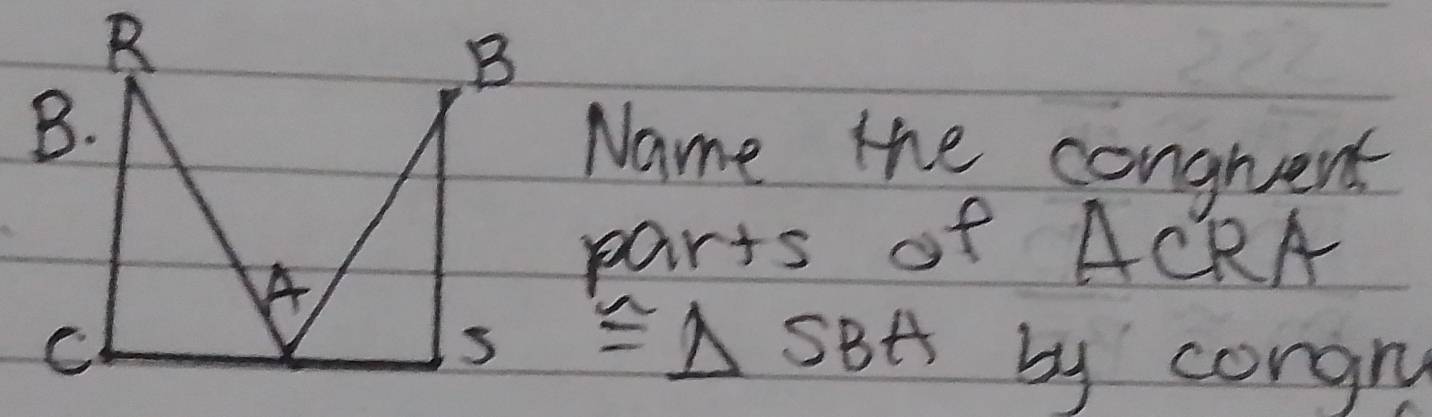 R
B
B.
A
C
S
Name the congruent
parts of ΔCRA
≅ Δ SBA by congru